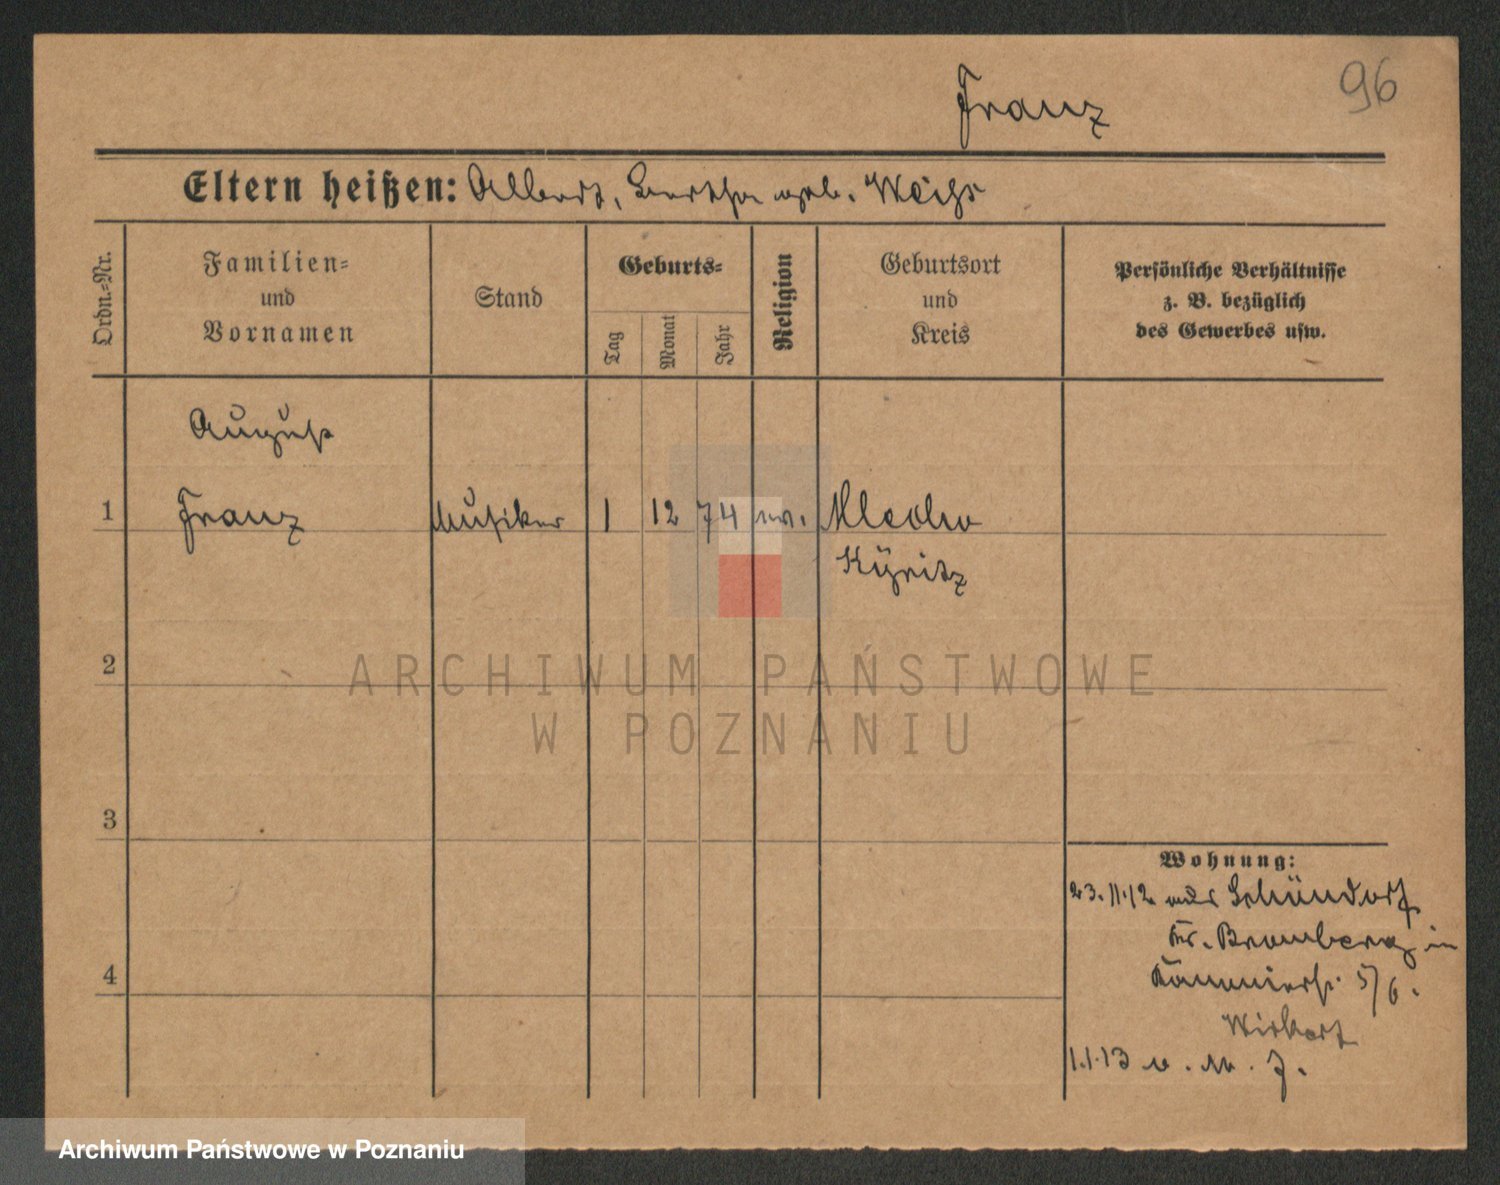 96
Franz
Eltern heißen: Albert, Bertha geb. Weiß
Ordn.-Nr.
Familien-
und
Vornamen
Stand
Geburts-
Tag
Monat
Jahr
Religion
Geburtsort
und
Kreis
Persönliche Verhältnisse
z. B. bezüglich
des Gewerbes usw.
August
1 Franz Musiker 1 12 74 ev.
Kyritz
2
3
4
Wohnung:
23.11.12 aus
Kr. Bromberg in
5/6.
1.1.13
ARCHIWUM PAŃSTWOWE
W POZNANIU
Archiwum Państwowe w Poznaniu